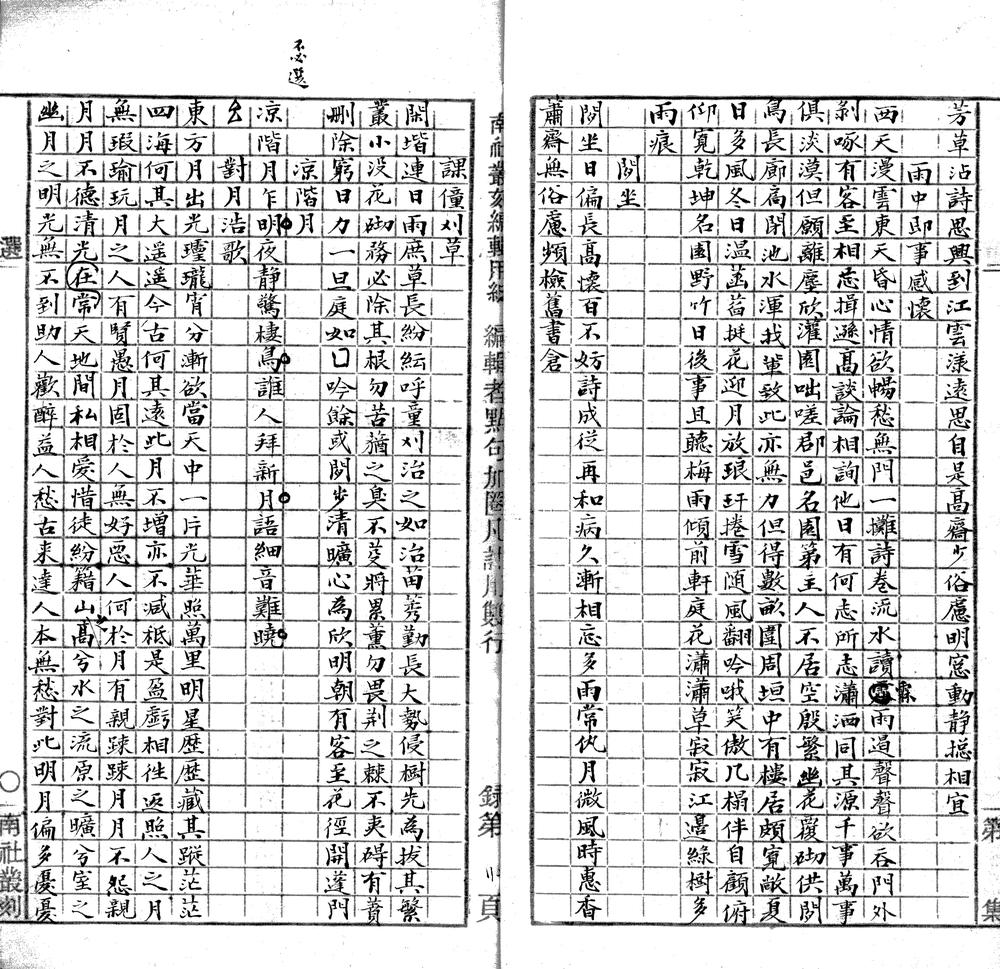 芳草沾詩思興到江雲漾遠思自是高齋少俗慮明窓動静摠相宜
雨中即事感懷
西天漫雲東天昏心情欲暢愁無門一攤詩卷流水讀霖雨過聲聲欲吞門外
剝啄有客至相忘揖遜高談論相詢他日有何志所志瀟洒同其源千事萬事
俱淡漠但願離塵欣灌園咄嗟郡邑名園第主人不居空殷繁幽花覆砌供閒
鳥長廊高閉池水渾我輩致此亦無力但得數畝圍周垣中有樓居頗寬敞夏
日多風冬日溫菡萏挺花迎月放琅玕捲雪随風翻吟哦笑傲几榻伴自顧俯
仰寬乾坤名園野竹日後事且聽梅雨傾前軒庭花瀟瀟草寂寂江邊綠樹多
雨痕
閒坐
閒坐日偏長高懷百不妨詩成從再和病久漸相忘多雨常仇月微風時惠香
蕭齋無俗慮頻檢舊書倉
第 集
南社叢刻編輯用紙 編輯者點句加圈凡註用雙行 錄第 頁
課僮刈草
閑堦連日雨庶草長紛紜呼童刈治之如治苗莠勤長大勢侵樹先為拔其繁
叢小没花砌務必除其根勿苦蕕之臭不芟將累薰勿畏荆之棘不夷礙有蕡
刪除窮日力一旦庭如囗吟餘或閒步清曠心為欣明朝有客至花徑開蓬門
不必選
涼階月
涼階月乍明夜静驚棲鳥誰人拜新月語細音難曉
對月浩歌
東方月出光瓏瓏宵分漸欲當天中一片光華照萬里明星歷歷藏其蹤茫茫
四海何其大遥遥今古何其遠此月不增亦不减柢是盈虧相往返照人之月
無瑕瑜玩月之人有賢愚月固於人無好惡人何於月有親踈踈月月不怨親
月月不德清光在常天地間私相愛惜徒紛籍山高兮水之流原之曠兮室之
幽月之明光無不到助人歡醉益人愁古来達人本無愁對此明月偏多憂憂
選 〇 南社叢刻